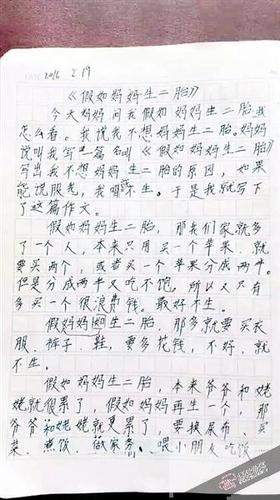 2016 2.19
《假如妈妈生二胎》
今天妈妈问我假如妈妈生二胎我
怎么看。我说我不想妈妈生二胎。妈妈
说叫我写一篇名叫《假如妈妈生二胎》
写出我不想妈妈生二胎的原因，如果
能说服老，我就不生。于是我就写下
了这篇作文。
假如妈妈生二胎，那我们家就多
了一个人，本来只用买一个苹果，就
要买两个，或者买一个苹果分成两半。
但是分成两半又吃不饱。所以又只有
多买一个很浪费钱。最好不生。
假妈妈如生二胎，那多就要买衣
服、裤子、鞋，要多花钱，不好，就
不生。
假如妈妈生二胎，本来爷爷和姥
姥就很累了，假如妈妈再生一个，那
爷爷和姥姥就更累了，要换尿布、买
菜、煮饭、做家务、喂小朋友吃饭